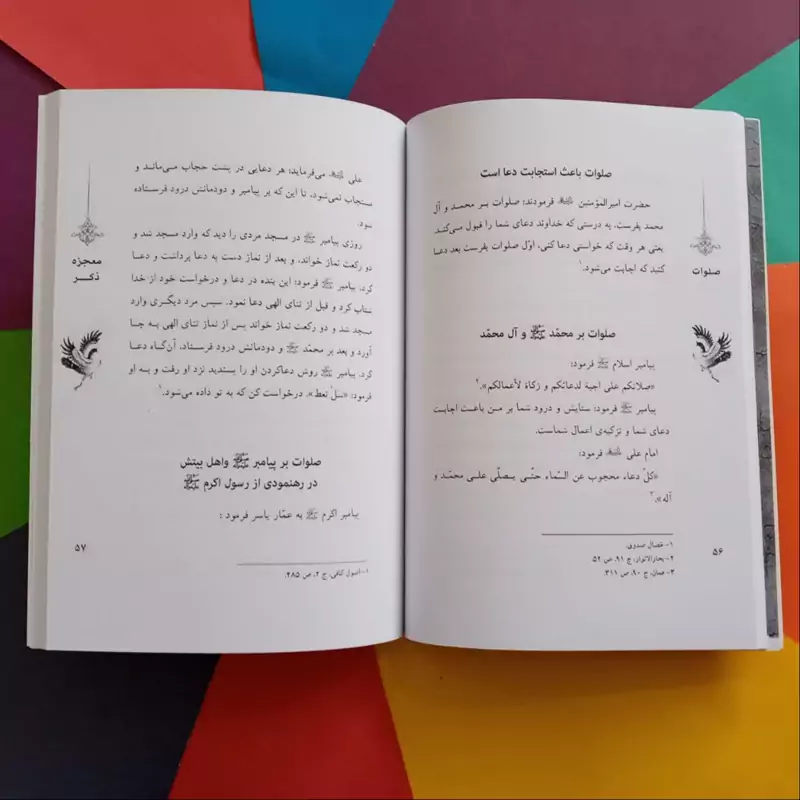 صلوات باعث استجابت دعا است
حضرت امیرالمؤمنین ﷺ فرمودند: صلوات بر محمد و آل
محمد بفرست، به درستی که خداوند دعای شما را قبول می‌کند.
یعنی هر وقت که خواستی دعا کنی، اوّل صلوات بفرست بعد دعا
کنید که اجابت می‌شود.۱
صلوات بر محمّد ﷺ و آل محمّد
پیامبر اسلام ﷺ فرمود:
«صلاتکم علی اجیة لدعائکم و زکاة لأعمالکم».۲
پیامبر ﷺ فرمود: ستایش و درود شما بر من باعث اجابت
دعای شما و تزکیه‌ی اعمال شماست.
امام علی فرمود:
«کلّ دعاء محجوب عن السّماء حتّی یصلّی علی محمّد و
آله».۳
۱- خصال صدوق.
۲- بحارالانوار، ج ۹۱، ص ۵۲
۳- همان، ج ۹۰، ص ۳۱۱.
صلوات
۵۶
علی می‌فرماید: هر دعایی در پشت حجاب می‌ماند و
مستجاب نمی‌شود، تا این که بر پیامبر و دودمانش درود فرستاده
شود.
روزی پیامبر ﷺ در مسجد مردی را دید که وارد مسجد شد و
دو رکعت نماز خواند، و بعد از نماز دست به دعا برداشت و دعا
کرد. پیامبر ﷺ فرمود: این بنده در دعا و درخواست خود از خدا
شتاب کرد و قبل از ثنای الهی دعا نمود. سپس مرد دیگری وارد
مسجد شد و دو رکعت نماز خواند پس از نماز ثنای الهی به جا
آورد و بعد بر محمّد ﷺ و دودمانش درود فرستاد، آن‌گاه دعا
کرد. پیامبر ﷺ روش دعاکردن او را پسندید نزد او رفت و به او
فرمود: «سَلْ تعط»، درخواست کن که به تو داده می‌شود.۱
صلوات بر پیامبر ﷺ واهل بیتش
در رهنمودی از رسول اکرم ﷺ
پیامبر اکرم ﷺ به عمّار یاسر فرمود :
۱- اصول کافی، ج ۲، ص ۴۸۵.
معجزه
ذکر
۵۷